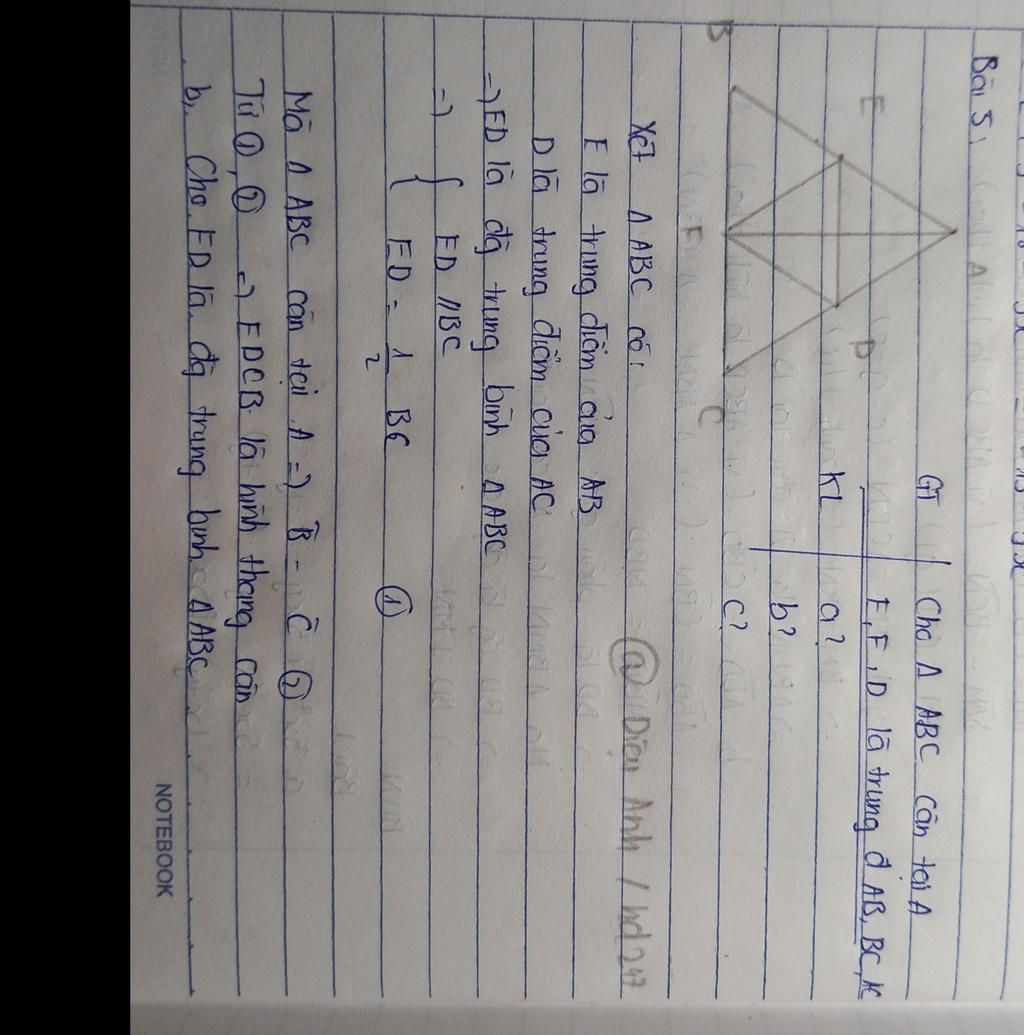 Bài 5:
A
E
D
B
F
C
GT Cho Δ ABC cân tại A
E, F, D là trung đ AB, BC, AC
KL a?
b?
c?
@ Diệu Anh / hd247
Xét Δ ABC có:
E là trung điểm của AB
D là trung điểm của AC
=> ED là đg trung bình Δ ABC
=> { ED // BC
{ ED = 1/2 BC ①
Mà Δ ABC cân tại A => B̂ = Ĉ ②
Từ ①, ② => EDCB là hình thang cân
b, Cho ED là đg trung bình Δ ABC
NOTEBOOK